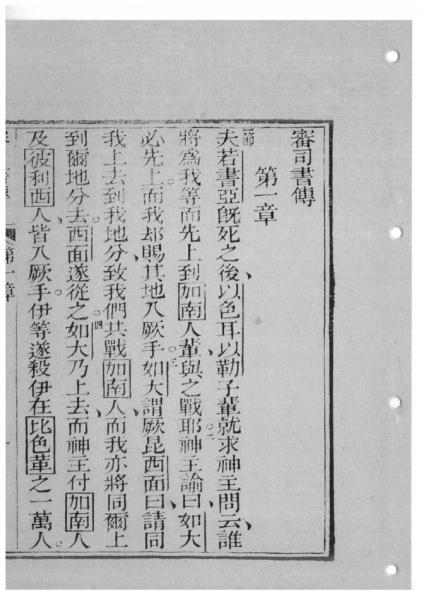 審司書傳
第一章
一節
夫若書亞既死之後以色耳以勒子輩就求神主問云誰
將爲我等而先上到加南人輩與之戰耶神主諭曰如大
二
必先上而我却賜其地入厥手如大謂厥昆西面曰請同
三
我上去到我地分致我們共戰加南人而我亦將同爾上
到爾地分去西面遂從之如大乃上去而神主付加南人
四
及彼利西人皆入厥手伊等遂殺伊在比色革之一萬人
第一章